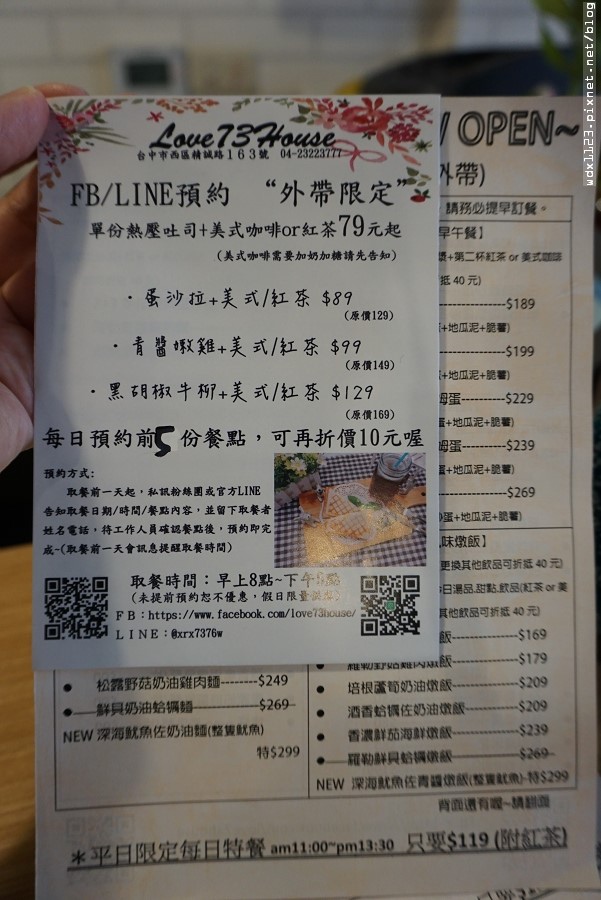 wdx1123.pixnet.net/blog
Love73House
台中市西區精誠路163號 04-23223777
FB/LINE預約 “外帶限定”
單份熱壓吐司+美式咖啡or紅茶79元起
(美式咖啡需要加奶加糖請先告知)
・蛋沙拉+美式/紅茶 $89
(原價129)
・青醬嫩雞+美式/紅茶 $99
(原價149)
・黑胡椒牛柳+美式/紅茶 $129
(原價169)
每日預約前5份餐點，可再折價10元喔
預約方式:
取餐前一天起，私訊粉絲團或官方LINE
告知取餐日期/時間/餐點內容，並留下取餐者
姓名電話，待工作人員確認餐點後，預約即完
成~(取餐前一天會訊息提醒取餐時間)
取餐時間：早上8點~下午
(未提前預約恕不優惠，假日限量
FB：https://www.facebook.com/love73house/
LINE：@xrx7376w
OPEN~
外帶)
請務必提早訂餐。
早午餐】
+第二杯紅茶 or 美式咖啡
抵 40 元)
$189
+地瓜泥+脆薯)
$199
+地瓜泥+脆薯)
蛋----------$229
+地瓜泥+脆薯)
蛋----------$239
+地瓜泥+脆薯)
$269
蛋+地瓜泥+脆薯)
味燉飯】
更換其他飲品可折抵 40 元)
日湯品,甜點,飲品(紅茶 or 美
其他飲品可折抵 40 元)
飯--------------$169
羅勒野菇雞肉燉飯------$179
● 培根蘆筍奶油燉飯------$209
● 酒香蛤蠣佐奶油燉飯----$209
● 香濃鮮茄海鮮燉飯------$239
● 羅勒鮮貝蛤蠣燉飯------$269
NEW 深海魷魚佐青醬燉飯(整隻魷魚)-特$299
背面還有喔~請翻面
● 松露野菇奶油雞肉麵-------$249
● 鮮貝奶油蛤蠣麵-------$269
NEW 深海魷魚佐奶油麵(整隻魷魚)
特$299
＊平日限定每日特餐 am11:00~pm13:30 只要$119 (附紅茶)